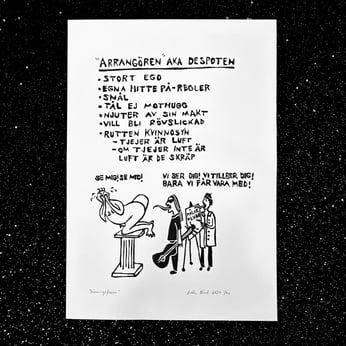 "ARRANGÖREN" AKA DESPOTEN
• STORT EGO
• EGNA HITTE PÅ-REGLER
• SNÅL
• TÅL EJ MOTHUGG
• NJUTER AV SIN MAKT
• VILL BLI RÖVSLICKAD
• RUTTEN KVINNOSYN
- TJEJER ÄR LUFT
- OM TJEJER INTE ÄR
LUFT ÄR DE SKRÄP
SE MIG! SE MIG!
VI SER DIG! VI TILLBER DIG!
BARA VI FÅR VARA MED!
"Arrangören"